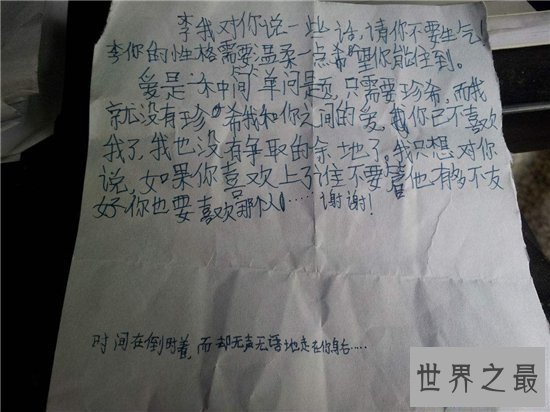 李我对你说一些话,请你不要生气
李你的性格需要温柔一点希望你能住到。
爱是一种简单问题,只需要珍希,而我
就没有珍希我和你之间的爱,你已不喜欢
我了,我也没有争取的余地了,我只想对你
说,如果你喜欢上了谁不要管他有多不友
好你也要喜欢那个人……谢谢!
时间在倒时着,而却无声无语地走在你身后……
世界之最